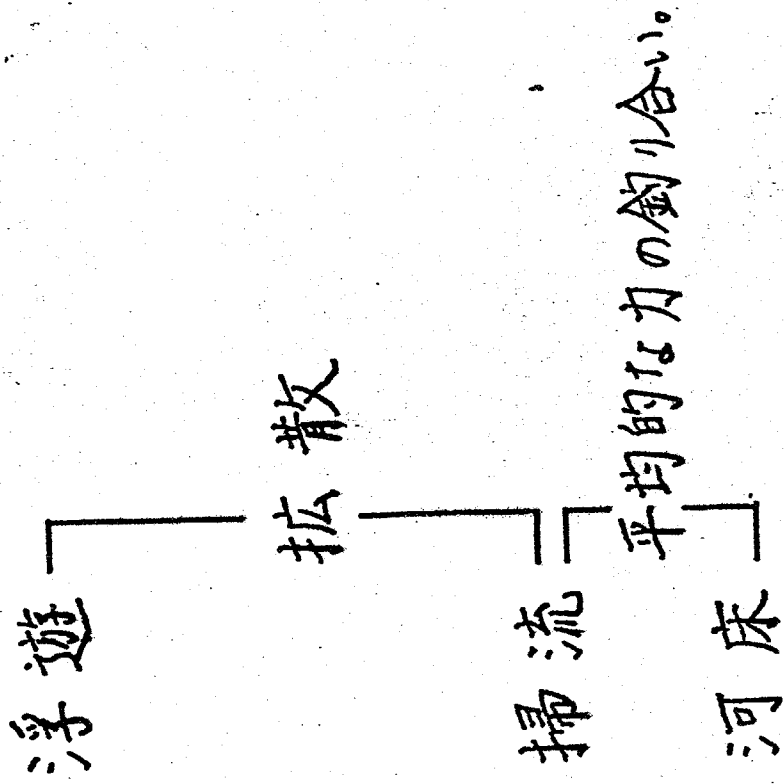 浮遊
拡散
掃流
平均的な力の釣り合い。
河床